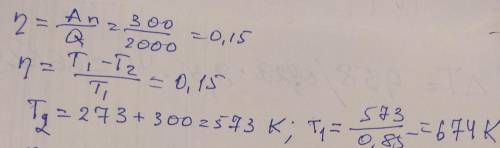 η = Aп/Q = 300/2000 = 0,15
η = T₁ - T₂/T₁ = 0,15
T₂ = 273 + 300 = 573 K; T₁ = 573/0,85 = 674 K